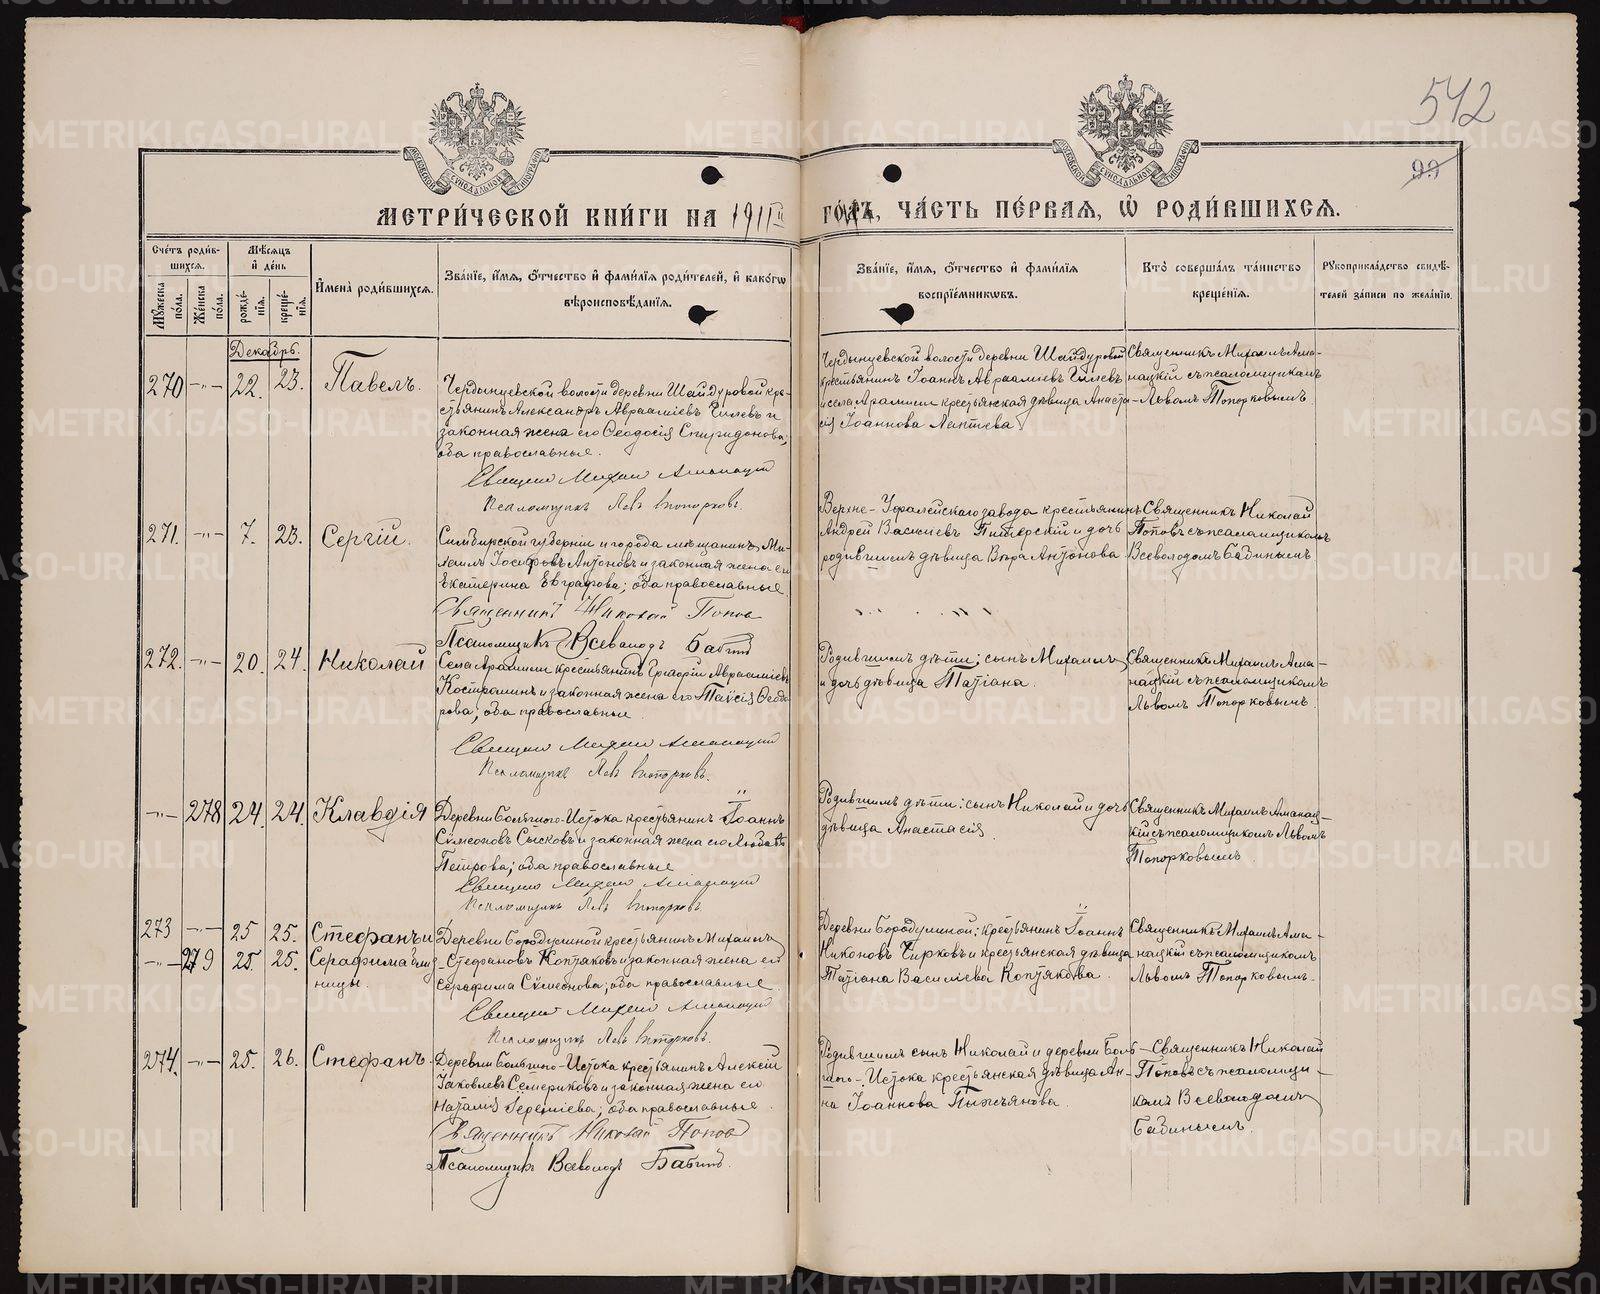 542
99
МЕТРИ́ЧЕСКОЙ КНИ́ГИ НА 1911й ГО́ДЪ, ЧА́СТЬ ПЕ́РВАЯ, Ѡ҆ РОДИ́ВШИХСЯ.
Сче́тъ роди́в-
шихся.
Мѣ́сяцъ
и҆ де́нь
Мꙋ́жеска
по́ла.
Же́нска
по́ла.
рожде́-
нїя.
креще́-
нїя.
И҆мена̀ роди́вшихся.
Зва́нїе, и҆́мя, ѻ҆́тчество и҆ фами́лїя роди́телей, и҆ како́гѡ
вѣроисповѣ́данїя.
Зва́нїе, и҆́мя, ѻ҆́тчество и҆ фами́лїя
воспрїе́мникѡвъ.
Кто̀ соверша́лъ та́инство
креще́нїя.
Рꙋкоприкла́дство свидѣ́-
телей за́писи по жела́нїю.
Декабрь.
270 -"- 22. 23. Павелъ.
Чердынцевской волости деревни Шайдуровой кре-
стьянинъ Александръ Авраамiевъ Чилевъ и
законная жена его Ѳеодосiя Спиридонова;
оба православные.
Священ Михаил Аманацкiй
Псаломщикъ Левъ Топорковъ.
Чердынцевской волости деревни Шайдуровой
крестьянинъ Iоаннъ Авраамiевъ Чилевъ
и села Арамили крестьянская дѣвица Анаста-
сiя Iоаннова Лаптева
Священникъ Михаилъ Ама-
нацкiй съ псаломщикомъ
Львомъ Топорковымъ
271. -"- 7. 23. Сергiй.
Симбирской губернiи и города мѣщанинъ Ми-
хаилъ Iосифовъ Антоновъ и законная жена его
Екатерина Евграфова; оба православные
Священникъ Николай Попов
Псаломщикъ Всеволодъ Бабинъ
Верхне-Уфалейскаго завода крестьянинъ
Андрей Васильевъ Питерскiй и дочь
родившимъ дѣвица Вѣра Антонова
Священникъ Николай
Поповъ съ псаломщикомъ
Всеволодомъ Бабинымъ
272. -"- 20. 24. Николай
Села Арамили крестьянинъ Григорiй Авраамiевъ
Костроминъ и законная жена его Таисiя Ѳеодо-
рова; оба православные
Священ Михаил Аманацкiй
Псаломщикъ Левъ Топорковъ.
Родившимъ дѣти: сынъ Михаилъ
и дочь дѣвица Татiана.
Священникъ Михаилъ Ама-
нацкiй съ псаломщикомъ
Львомъ Топорковымъ
-"- 278 24. 24. Клавдiя
Деревни Большого-Истока крестьянинъ Iоаннъ
Сѵмеоновъ Сысковъ и законная жена его Любовь
Петрова; оба православные
Священ Михаил Аманацкiй
Псаломщикъ Левъ Топорковъ.
Родившимъ дѣти: сынъ Николай и дочь
дѣвица Анастасiя
Священникъ Михаилъ Аманац-
кiй съ псаломщикомъ Львомъ
Топорковымъ
273 -"- 25 25. Стефанъ и
-"- 279 25. 25. Серафима близ-
ницы.
Деревни Бородулиной крестьянинъ Михаилъ
Стефановъ Коптяковъ и законная жена его
Серафима Сѵмеонова; оба православные
Священ Михаил Аманацкiй
Псаломщикъ Левъ Топорковъ.
Деревни Бородулиной: крестьянинъ Iоаннъ
Никоновъ Чирковъ и крестьянская дѣвица
Татiана Василiева Коптякова.
Священникъ Михаилъ Ама-
нацкiй съ псаломщикомъ
Львомъ Топорковымъ.
274. -"- 25. 26. Стефанъ.
Деревни Большого-Истока крестьянинъ Алексiй
Iаковлевъ Семериковъ и законная жена его
Наталiя Iеремiева; оба православные.
Священникъ Николай Попов
Псаломщикъ Всеволодъ Бабинъ.
Родившимъ сынъ Николай и деревни Боль-
шого-Истока крестьянская дѣвица Ан-
на Iоаннова Пыжьянова.
Священникъ Николай
Поповъ съ псаломщи-
комъ Всеволодомъ
Бабинымъ.
METRIKI.GASO-URAL.RU